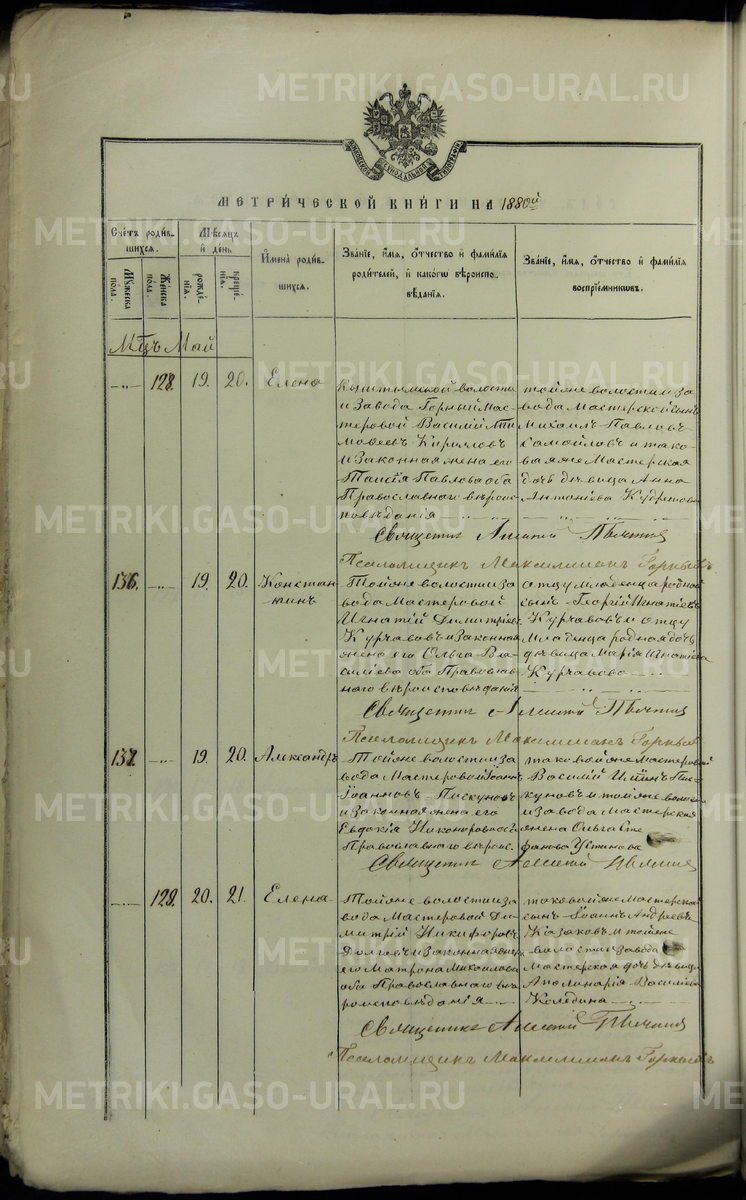 METRIKI.GASO-URAL.RU
МЕТРИ́ЧЕСКОЙ КНИ́ГИ НА 1880й
Сче́тъ роди́в-
шихся.
Мѣ́сяцъ
и́ день.
Му́жеска
по́ла.
Же́нска
по́ла.
рожде́-
нія.
креще́-
нія.
Имена̀ роди́в-
шихся.
Зва́ніе, и́мя, о́тчество и̑ фами́лія
роди́телей, и̑ како́гѡ вѣроиспо-
вѣ́данія.
Зва́ніе, и́мя, о́тчество и̑ фами́лія
воспріе́мниковъ.
Мцъ Май
—„— 128. 19. 20. Елена
Кыштымской волости
и Завода Горный Мас-
теровой Василій Ти-
мофеевъ Кириловъ
и Законная жена его
Таисія Павлова оба
Православнаго вѣроис-
повѣданія
той же волости и за-
вода Мастерской сынъ
Михаилъ Павловъ
Самойловъ и тако-
вая же Мастерская
дочь дѣвица Анна
Антоніева
Священникъ
Псаломщикъ Максимиліанъ Горныхъ
136. —„— 19. 20. Констан-
тинъ
Той же волости и за
вода Мастеровой
Игнатій Димитріевъ
Курчавовъ и законная
жена его Ольга Ва-
силіева оба Православ-
наго вѣроисповѣданія
отцу младенца родной
сынъ Георгій Игнатіевъ
Курчавовъ и отцу
Младенца родная дочь
дѣвица Марія Игнатіева
Курчавова
Священникъ
Псаломщикъ Максимиліанъ Горныхъ
137. —„— 19. 20. Александръ
Той же волости и за
вода Мастеровой Іоаннъ
Іоанновъ Пискуновъ
и законная жена его
Евдокія Никонорова оба
Православнаго вѣроис.
таковой же Мастеровой
Василій Пис-
куновъ и той же волости
и завода Мастерская
жена Ольга Сте
фанова Устинова
Священникъ
—„— 129. 20. 21. Елена
Той же волости и за
вода Мастеровой Ди-
митрій Никифоровъ
Долговъ и законная жена
его Матрона Михаилова
оба Православнаго вѣ
роисповѣданія
таковой же Мастерской
сынъ Іоаннъ Андреевъ
Казаковъ и той же
волости и завода
Мастерская дочь дѣвица
Аполинарія Василіева
Коледина
Священникъ
Псаломщикъ Максимиліанъ Горныхъ